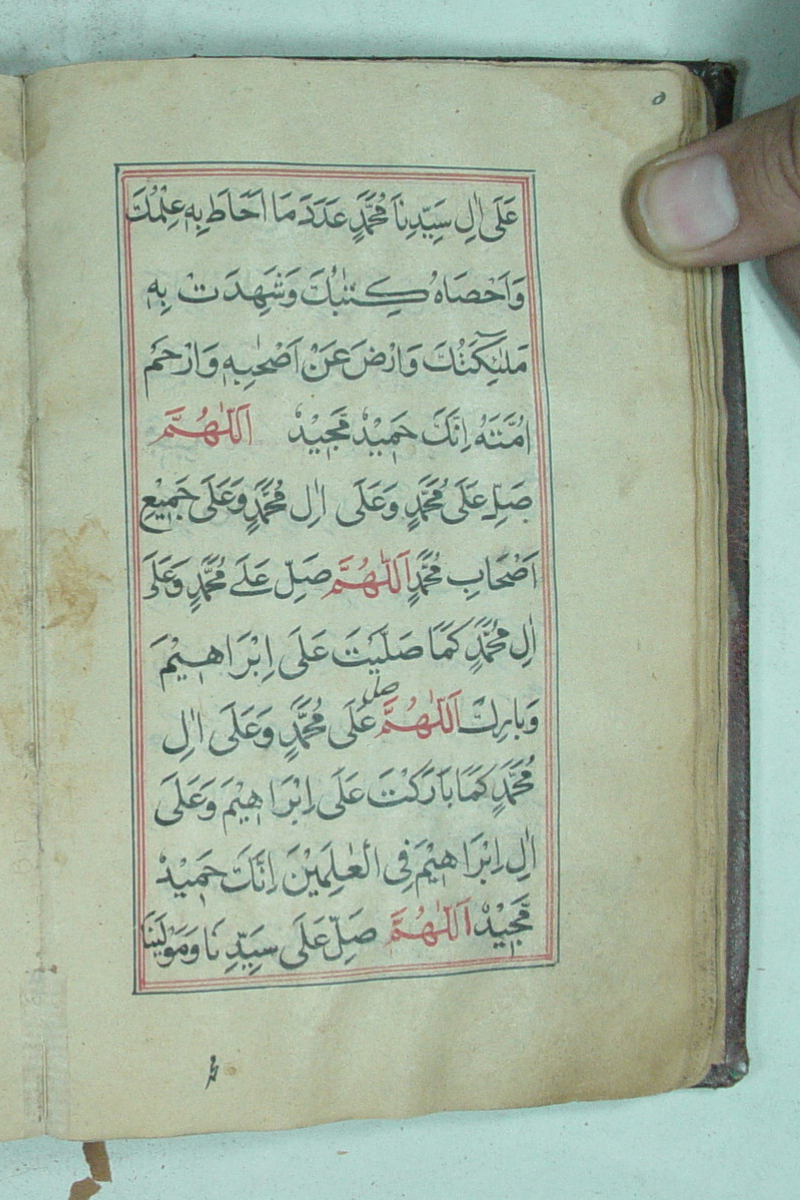 ۵
عَلَى اٰلِ سَيِّدِنَا مُحَمَّدٍ عَدَدَ مَا اَحَاطَ بِهٖ عِلْمُكَ
وَاَحْصَاهُ كِتٰبُكَ وَشَهِدَتْ بِهٖ
مَلٰٓئِكَتُكَ وَارْضَ عَنْ اَصْحٰبِهٖ وَارْحَمْ
اُمَّتَهٗ اِنَّكَ حَمِيْدٌ مَّجِيْدٌ اَللّٰهُمَّ
صَلِّ عَلَى مُحَمَّدٍ وَعَلَى اٰلِ مُحَمَّدٍ وَعَلَى جَمِيْعِ
اَصْحَابِ مُحَمَّدٍ اَللّٰهُمَّ صَلِّ عَلَے مُحَمَّدٍ وَعَلَى
اٰلِ مُحَمَّدٍ كَمَا صَلَّيْتَ عَلَى اِبْرَاهِيْمَ
وَبَارِكْ اَللّٰهُمَّ صل عَلَى مُحَمَّدٍ وَعَلَى اٰلِ
مُحَمَّدٍ كَمَا بَارَكْتَ عَلَى اِبْرَاهِيْمَ وَعَلَى
اٰلِ اِبْرَاهِيْمَ فِى الْعٰلَمِيْنَ اِنَّكَ حَمِيْدٌ
مَّجِيْدٌ اَللّٰهُمَّ صَلِّ عَلَى سَيِّدِنَا وَمَوْلَيْنَا